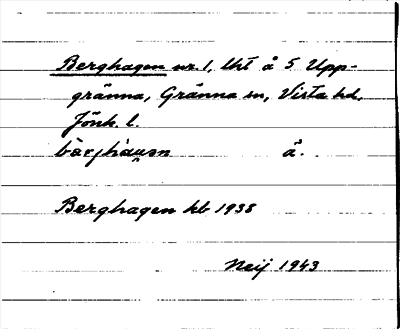 Berghagen nr. 1, lht å S. Upp-
gränna, Gränna sn, Vista hd,
Jönk. l.
å.
Berghagen kb 1938
Neij 1943